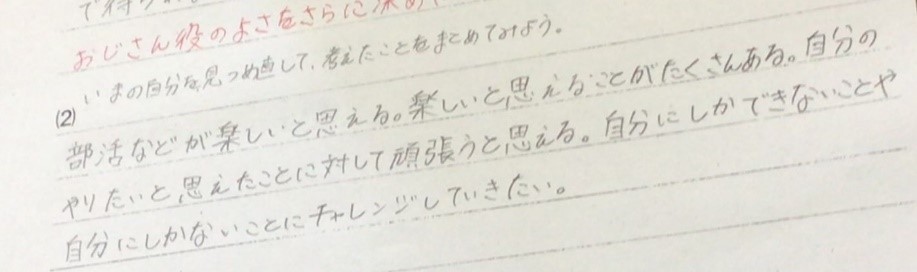 おじさん役のよさをさらに深め
(2) いまの自分を見つめ直して、考えたことをまとめてみよう。
部活などが楽しいと思える。楽しいと思えることがたくさんある。自分の
やりたいと思えたことに対して頑張うと思える。自分にしかできないことや
自分にしかないことにチャレンジしていきたい。